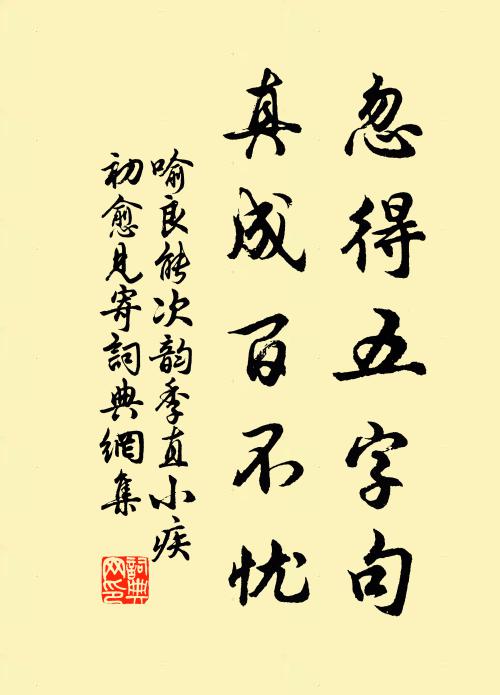 忽得五字句
真成百不忧
喻良能次韵季直小疾
初愈见寄詞典網集
詞典网印